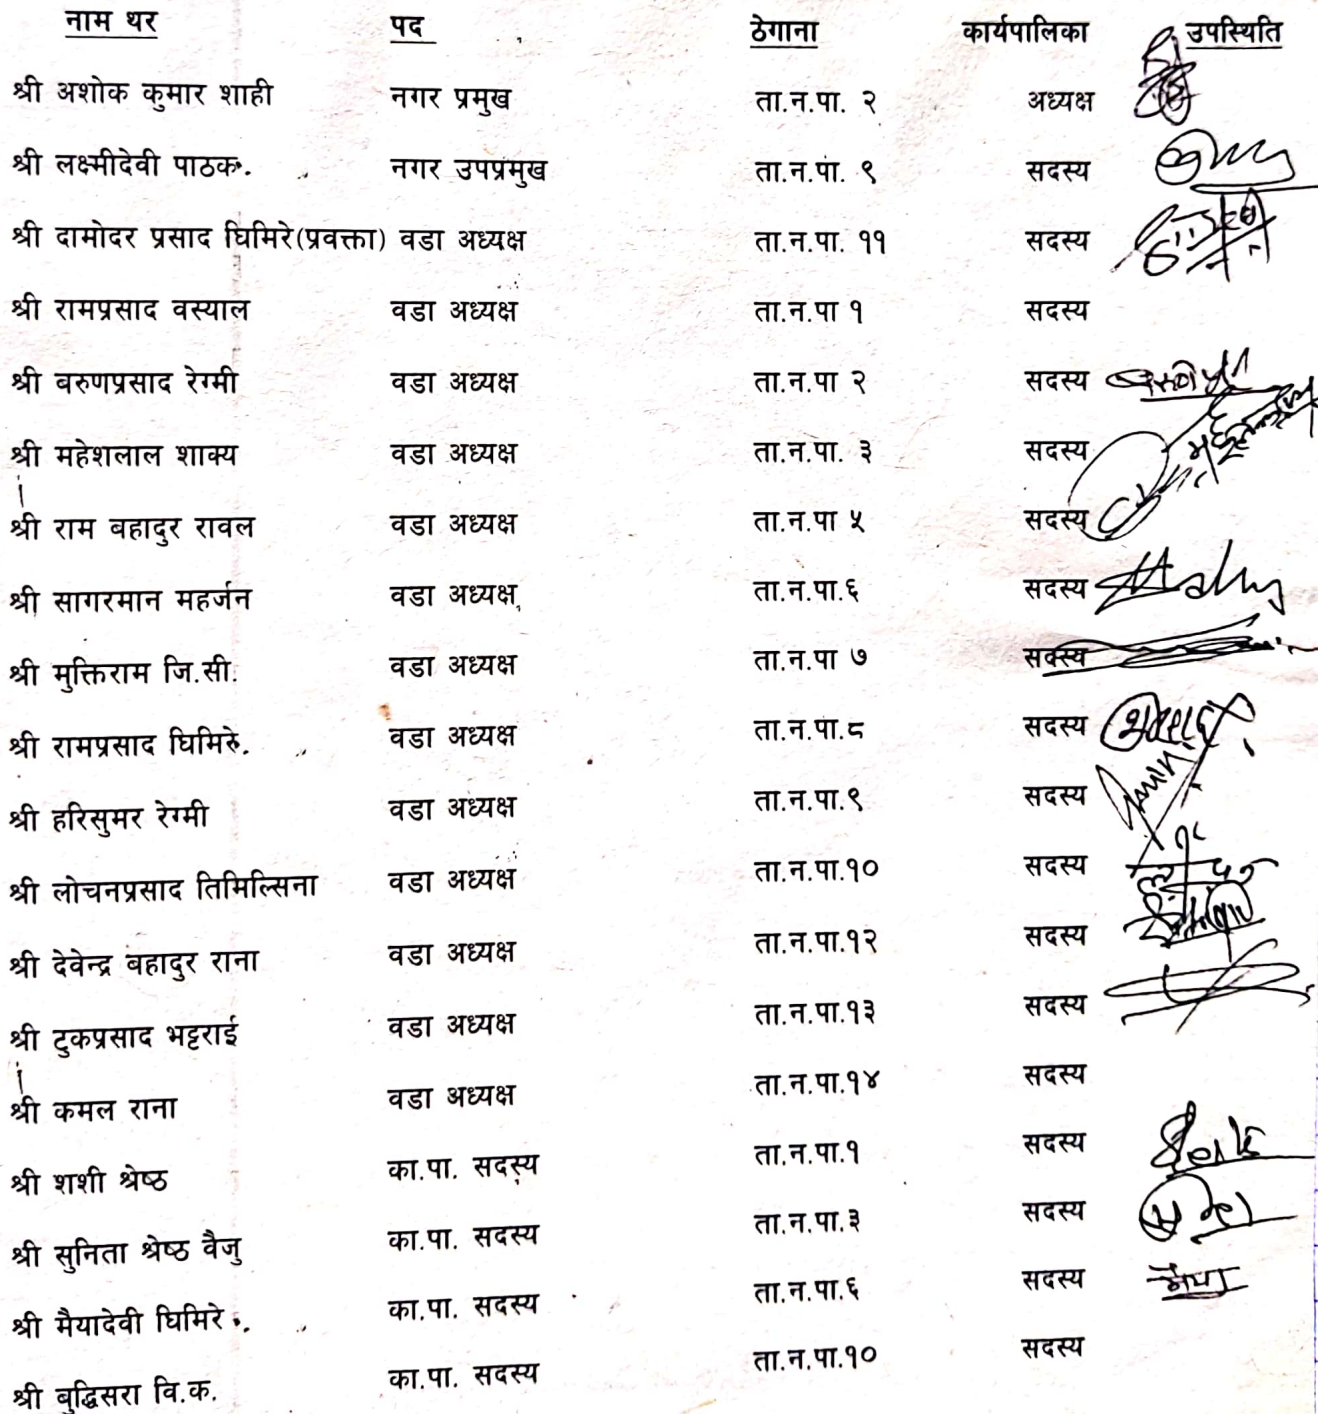 नाम थर पद ठेगाना कार्यपालिका उपस्थिति
श्री अशोक कुमार शाही नगर प्रमुख ता.न.पा. २ अध्यक्ष
श्री लक्ष्मीदेवी पाठक. नगर उपप्रमुख ता.न.पा. ९ सदस्य
श्री दामोदर प्रसाद घिमिरे(प्रवक्ता) वडा अध्यक्ष ता.न.पा. ११ सदस्य
श्री रामप्रसाद वस्याल वडा अध्यक्ष ता.न.पा १ सदस्य
श्री बरुणप्रसाद रेग्मी वडा अध्यक्ष ता.न.पा २ सदस्य
श्री महेशलाल शाक्य वडा अध्यक्ष ता.न.पा. ३ सदस्य
श्री राम बहादुर रावल वडा अध्यक्ष ता.न.पा ५ सदस्य
श्री सागरमान महर्जन वडा अध्यक्ष ता.न.पा.६ सदस्य
श्री मुक्तिराम जि.सी. वडा अध्यक्ष ता.न.पा ७ सदस्य
श्री रामप्रसाद घिमिरे. वडा अध्यक्ष ता.न.पा.८ सदस्य
श्री हरिसुमर रेग्मी वडा अध्यक्ष ता.न.पा.९ सदस्य
श्री लोचनप्रसाद तिमिल्सिना वडा अध्यक्ष ता.न.पा.१० सदस्य
श्री देवेन्द्र बहादुर राना वडा अध्यक्ष ता.न.पा.१२ सदस्य
श्री टुकप्रसाद भट्टराई वडा अध्यक्ष ता.न.पा.१३ सदस्य
श्री कमल राना वडा अध्यक्ष ता.न.पा.१४ सदस्य
श्री शशी श्रेष्ठ का.पा. सदस्य ता.न.पा.१ सदस्य
श्री सुनिता श्रेष्ठ वैजु का.पा. सदस्य ता.न.पा.३ सदस्य
श्री मैयादेवी घिमिरे. का.पा. सदस्य ता.न.पा.६ सदस्य मैया
श्री बुद्धिसरा वि.क. का.पा. सदस्य ता.न.पा.१० सदस्य